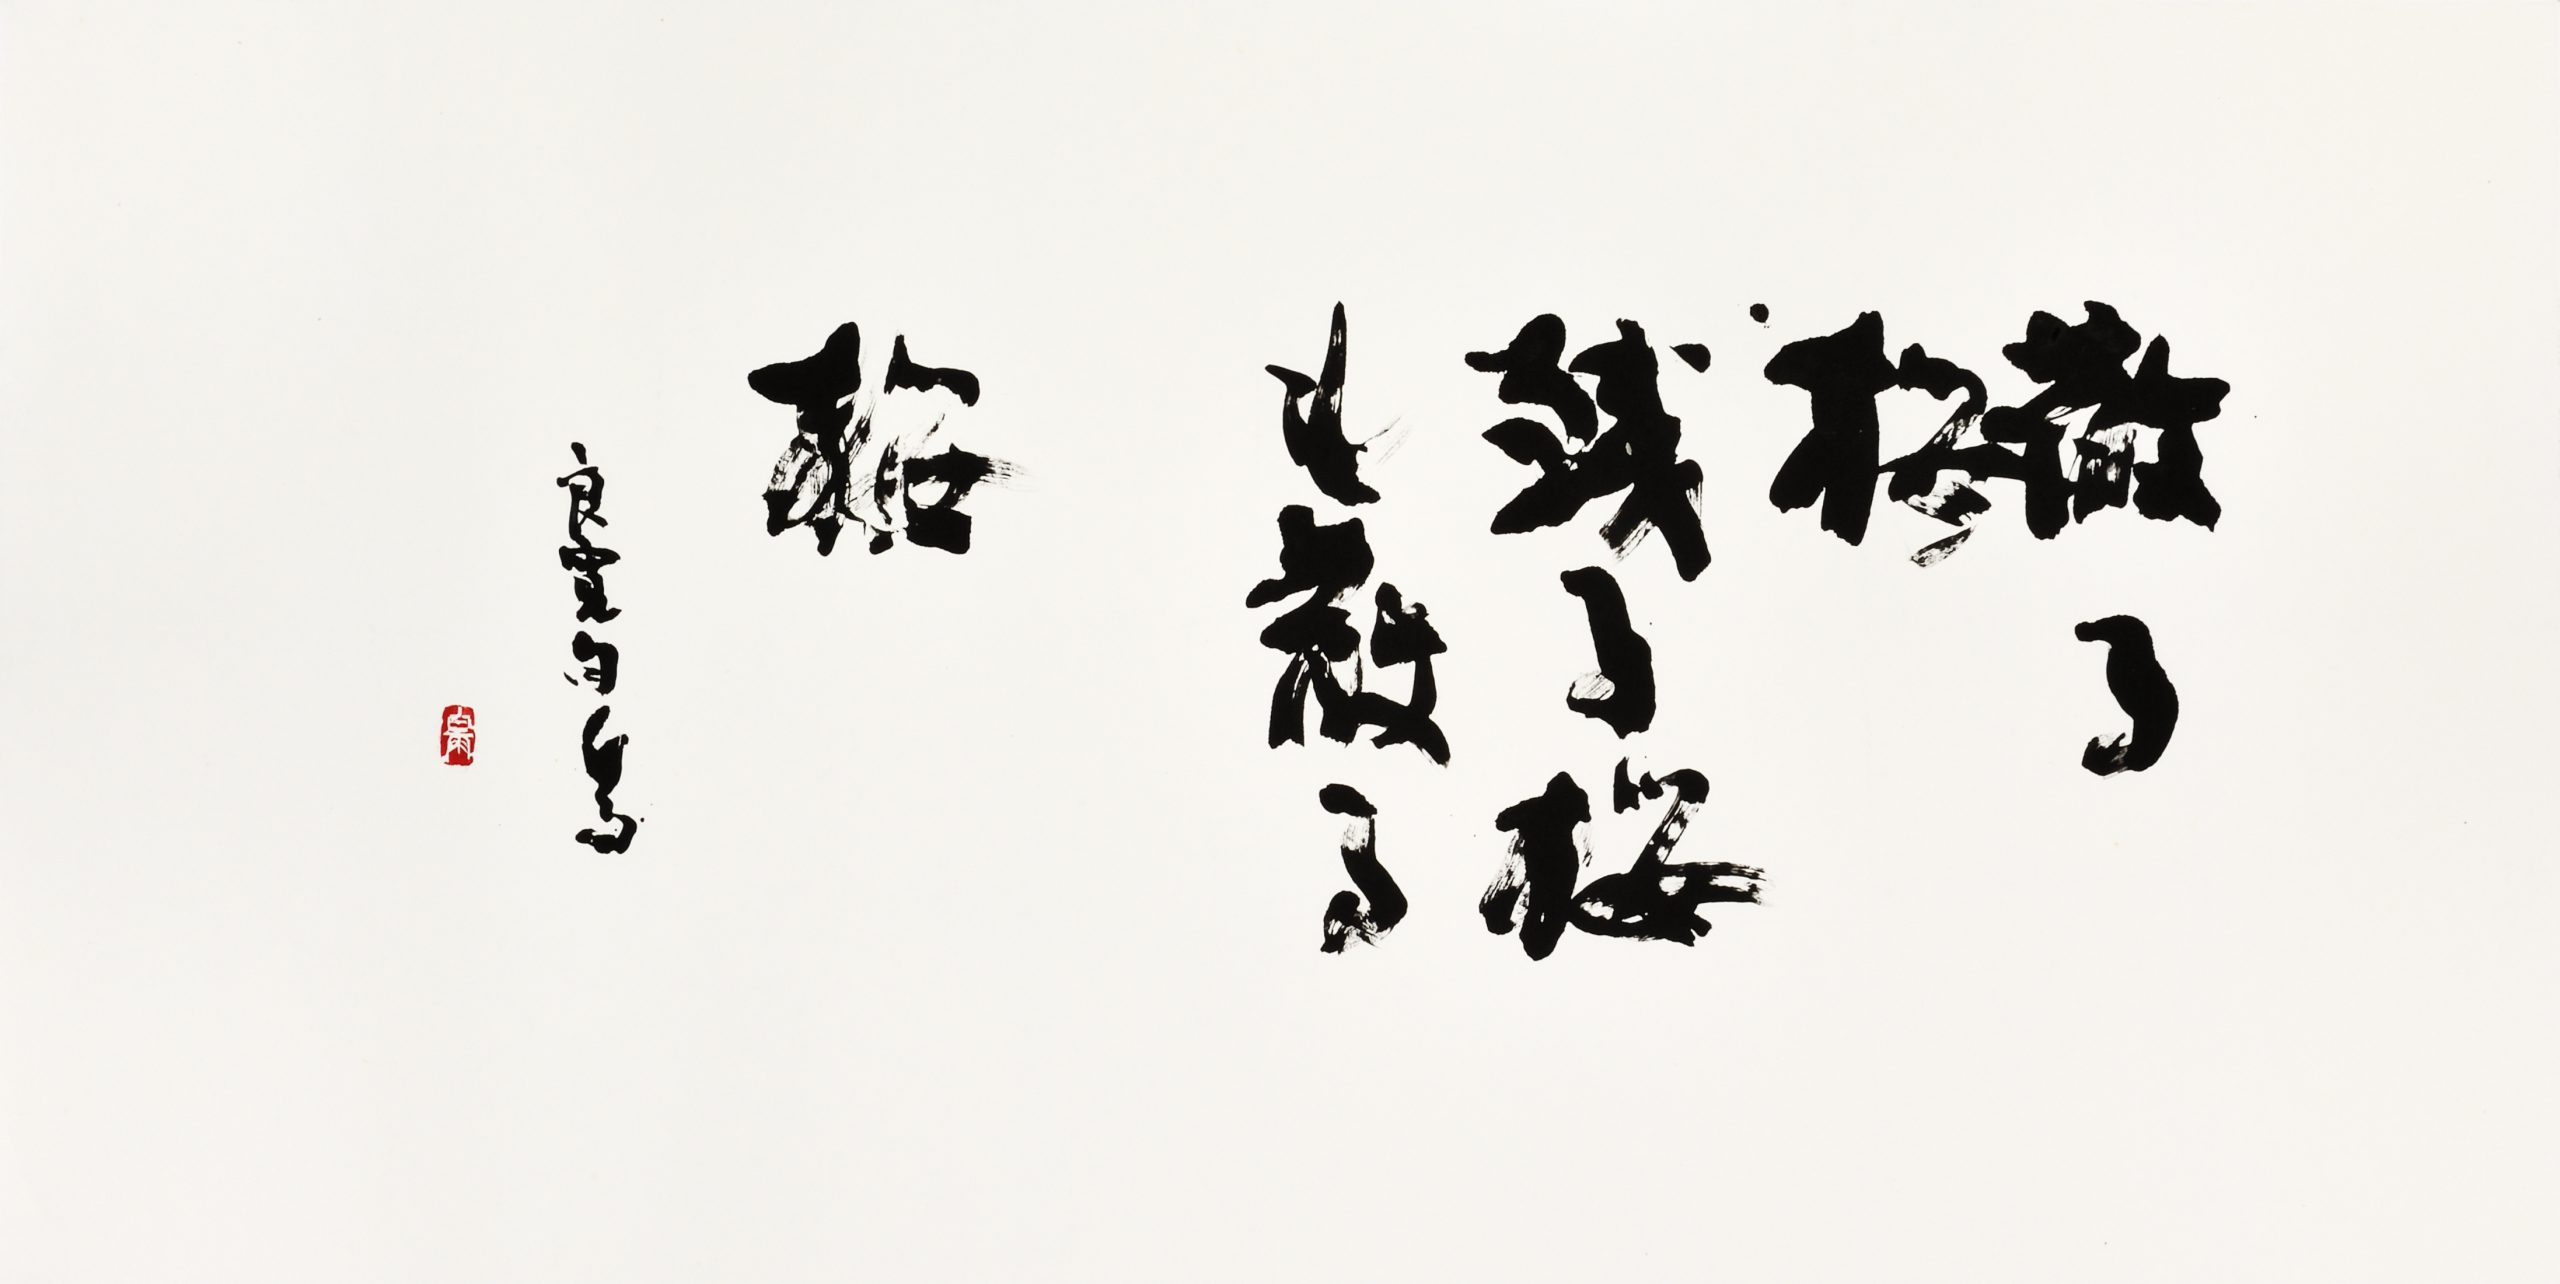 散る
桜
残る桜
も散る
桜
良寛句